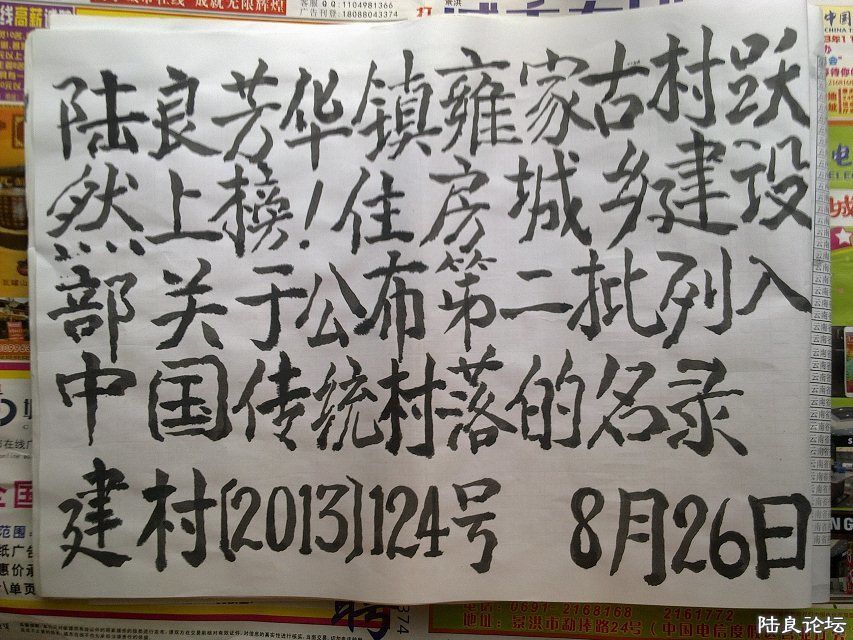 客服QQ:1104981366
广告刊登:18088043374
陆良芳华镇雍家古村跃
然上榜!住房城乡建设
部关于公布第二批列入
中国传统村落的名录
建村[2013]124号 8月26日
电话:0691-2168168 2161772
地址:景洪市勐棒路24号
陆良论坛